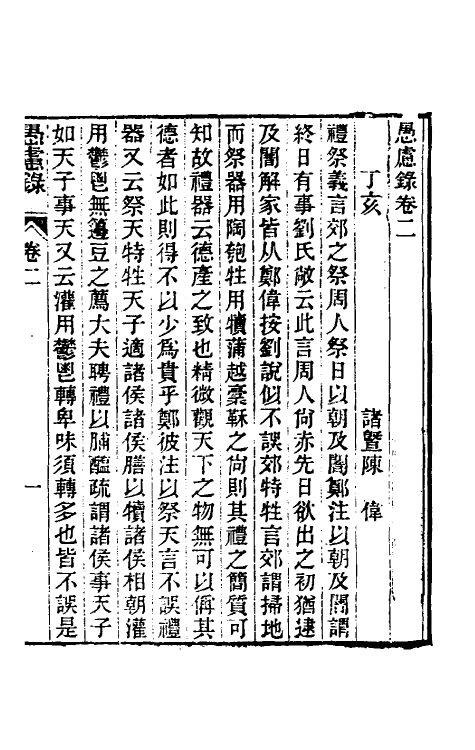 愚慮錄卷二
丁亥　諸暨陳　偉
禮祭義言郊之祭周人祭日以朝及闇鄭注以朝及闇謂
終日有事劉氏敞云此言周人尙赤先日欲出之初猶逮
及闇解家皆从鄭偉按劉說似不誤郊特牲言郊謂掃地
而祭器用陶匏牲用犢蒲越稾鞂之尙則其禮之簡質可
知故禮器云德產之致也精微觀天下之物無可以偁其
德者如此則得不以少爲貴乎鄭彼注以祭天言不誤禮
器又云祭天特牲天子適諸侯諸侯膳以犢諸侯相朝灌
用鬱鬯無籩豆之薦大夫聘禮以脯醢疏謂諸侯事天子
如天子事天又云灌用鬱鬯轉卑味須轉多也皆不誤是
愚慮錄　卷二　一